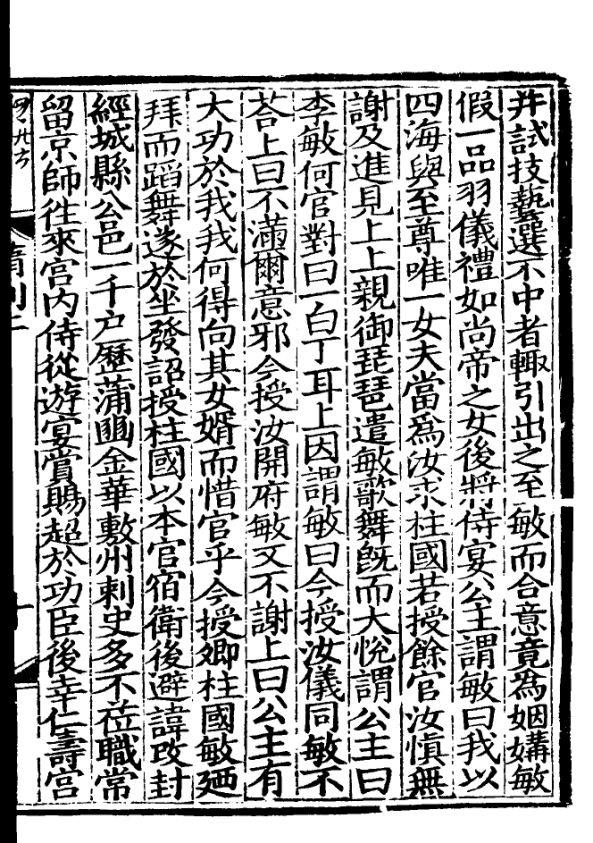 并試技藝選不中者輙引出之至敏而合意竟為姻媾敏
假一品羽儀禮如尚帝之女後將侍宴公主謂敏曰我以
四海與至尊唯一女夫當為汝求柱國若授餘官汝慎無
謝及進見上上親御琵琶遣敏歌舞旣而大悅謂公主曰
李敏何官對曰一白丁耳上因謂敏曰今授汝儀同敏不
荅上曰不滿爾意邪今授汝開府敏又不謝上曰公主有
大功於我我何得向其女婿而惜官乎今授卿柱國敏廼
拜而蹈舞遂於坐發詔授柱國以本官宿衛後避諱改封
經城縣公邑一千户歷蒲豳金華敷州刺史多不莅職常
留京師徃來宮内侍從遊宴賞賜超於功臣後幸仁壽宮